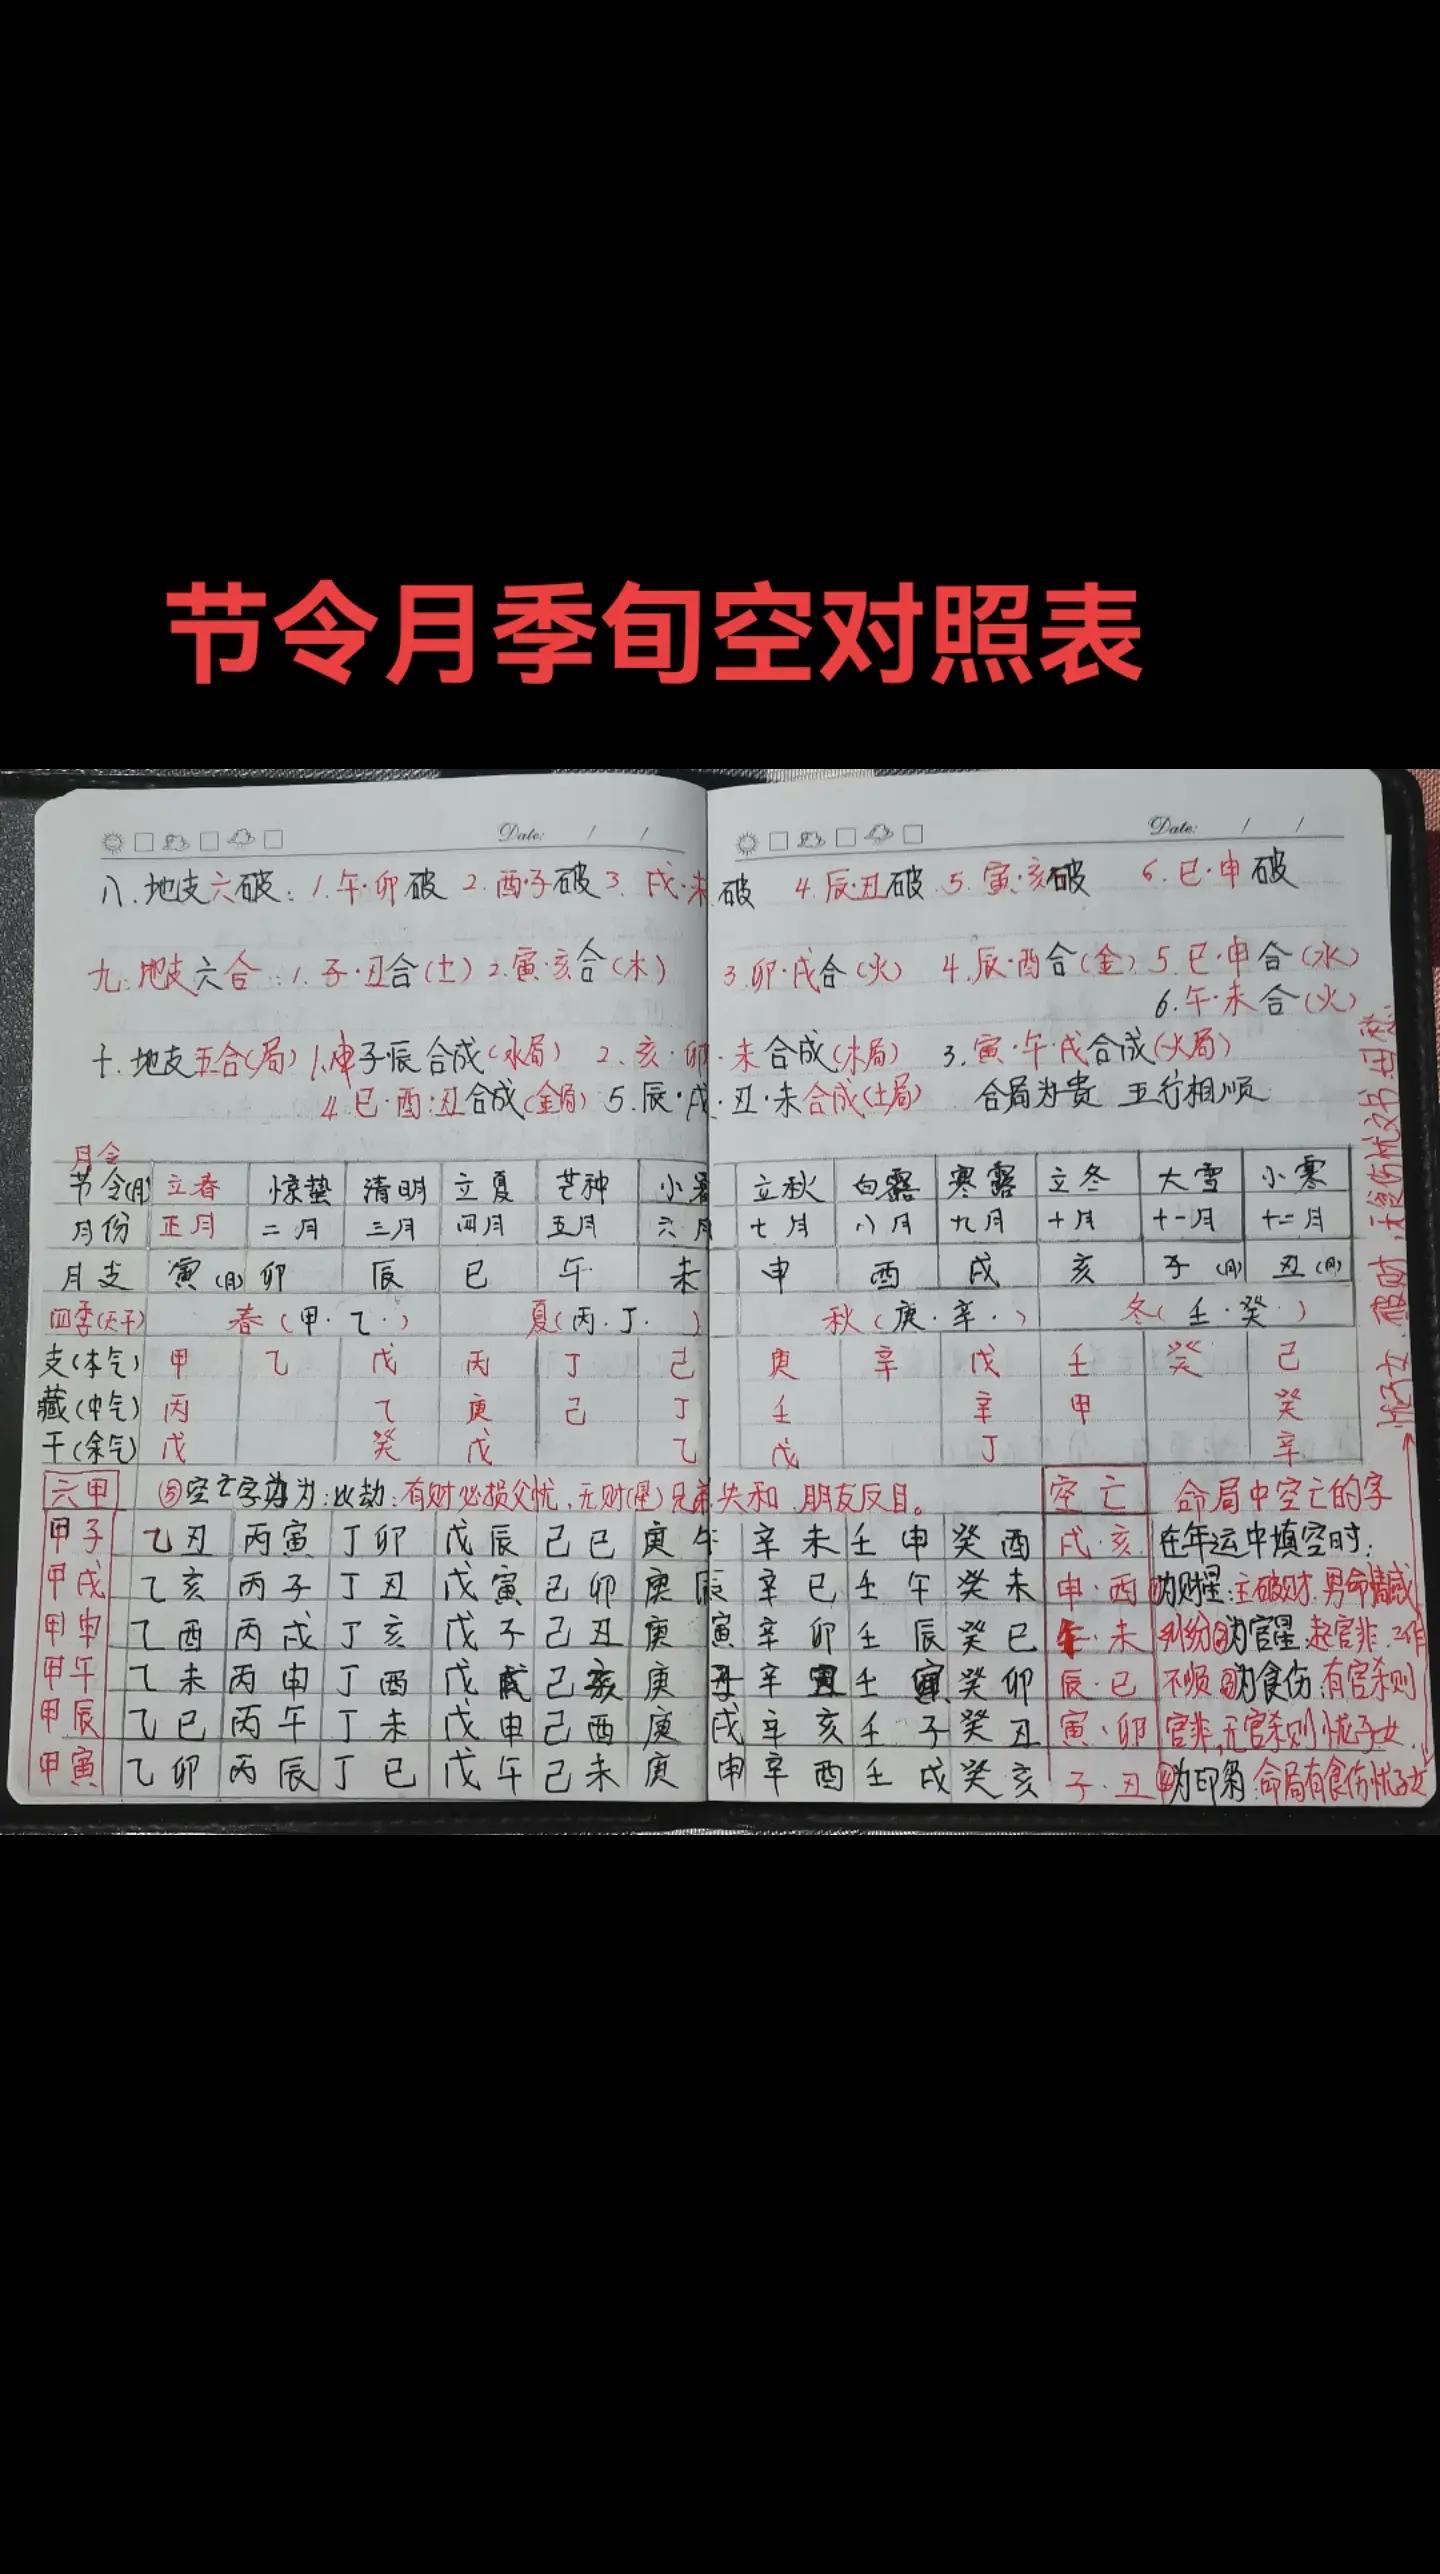 节令月季旬空对照表
Date: / /
Date: / /
八.地支六破：1.午·卯破 2.酉·子破 3.戌·未破 4.辰·丑破 5.寅·亥破 6.巳·申破
九：地支六合：1.子·丑合（土）2.寅·亥合（木） 3.卯·戌合（火） 4.辰·酉合（金）5.巳·申合（水）
6.午·未合（火）
十.地支五合（局）1.申子辰合成（水局） 2.亥·卯·未合成（木局） 3.寅·午·戌合成（火局）
4.巳·酉·丑合成（金局）5.辰·戌·丑·未合成（土局） 合局为贵 五行相顺
月令
节令（月） 立春 惊蛰 清明 立夏 芒种 小暑 立秋 白露 寒露 立冬 大雪 小寒
月份 正月 二月 三月 四月 五月 六月 七月 八月 九月 十月 十一月 十二月
月支 寅（月） 卯 辰 巳 午 未 申 酉 戌 亥 子（月） 丑（月）
四季（天干） 春（甲·乙·） 夏（丙·丁·） 秋（庚·辛·） 冬（壬·癸·）
支（本气） 甲 乙 戊 丙 丁 己 庚 辛 戊 壬 癸 己
藏（中气） 丙 乙 庚 己 丁 壬 辛 甲 癸
干（余气） 戊 癸 戊 乙 戊 丁 辛
六甲 ⑤空亡字为：比劫：有财必损父忧，无财（星）兄弟失和、朋友反目。 空亡 命局中空亡的字
甲子 乙丑 丙寅 丁卯 戊辰 己巳 庚午 辛未 壬申 癸酉 戌·亥 在年运中填空时：
甲戌 乙亥 丙子 丁丑 戊寅 己卯 庚辰 辛巳 壬午 癸未 申·酉 ①为财星：主破财.男命情感
甲申 乙酉 丙戌 丁亥 戊子 己丑 庚寅 辛卯 壬辰 癸巳 午·未 纠纷②为官星：起官非.工作
甲午 乙未 丙申 丁酉 戊戌 己亥 庚子 辛丑 壬寅 癸卯 辰·巳 不顺③为食伤：有官杀则
甲辰 乙巳 丙午 丁未 戊申 己酉 庚戌 辛亥 壬子 癸丑 寅·卯 官非，无官杀则忧子女.
甲寅 乙卯 丙辰 丁巳 戊午 己未 庚申 辛酉 壬戌 癸亥 子·丑 ④为印枭：命局有食伤忧子女
无食伤忧文书